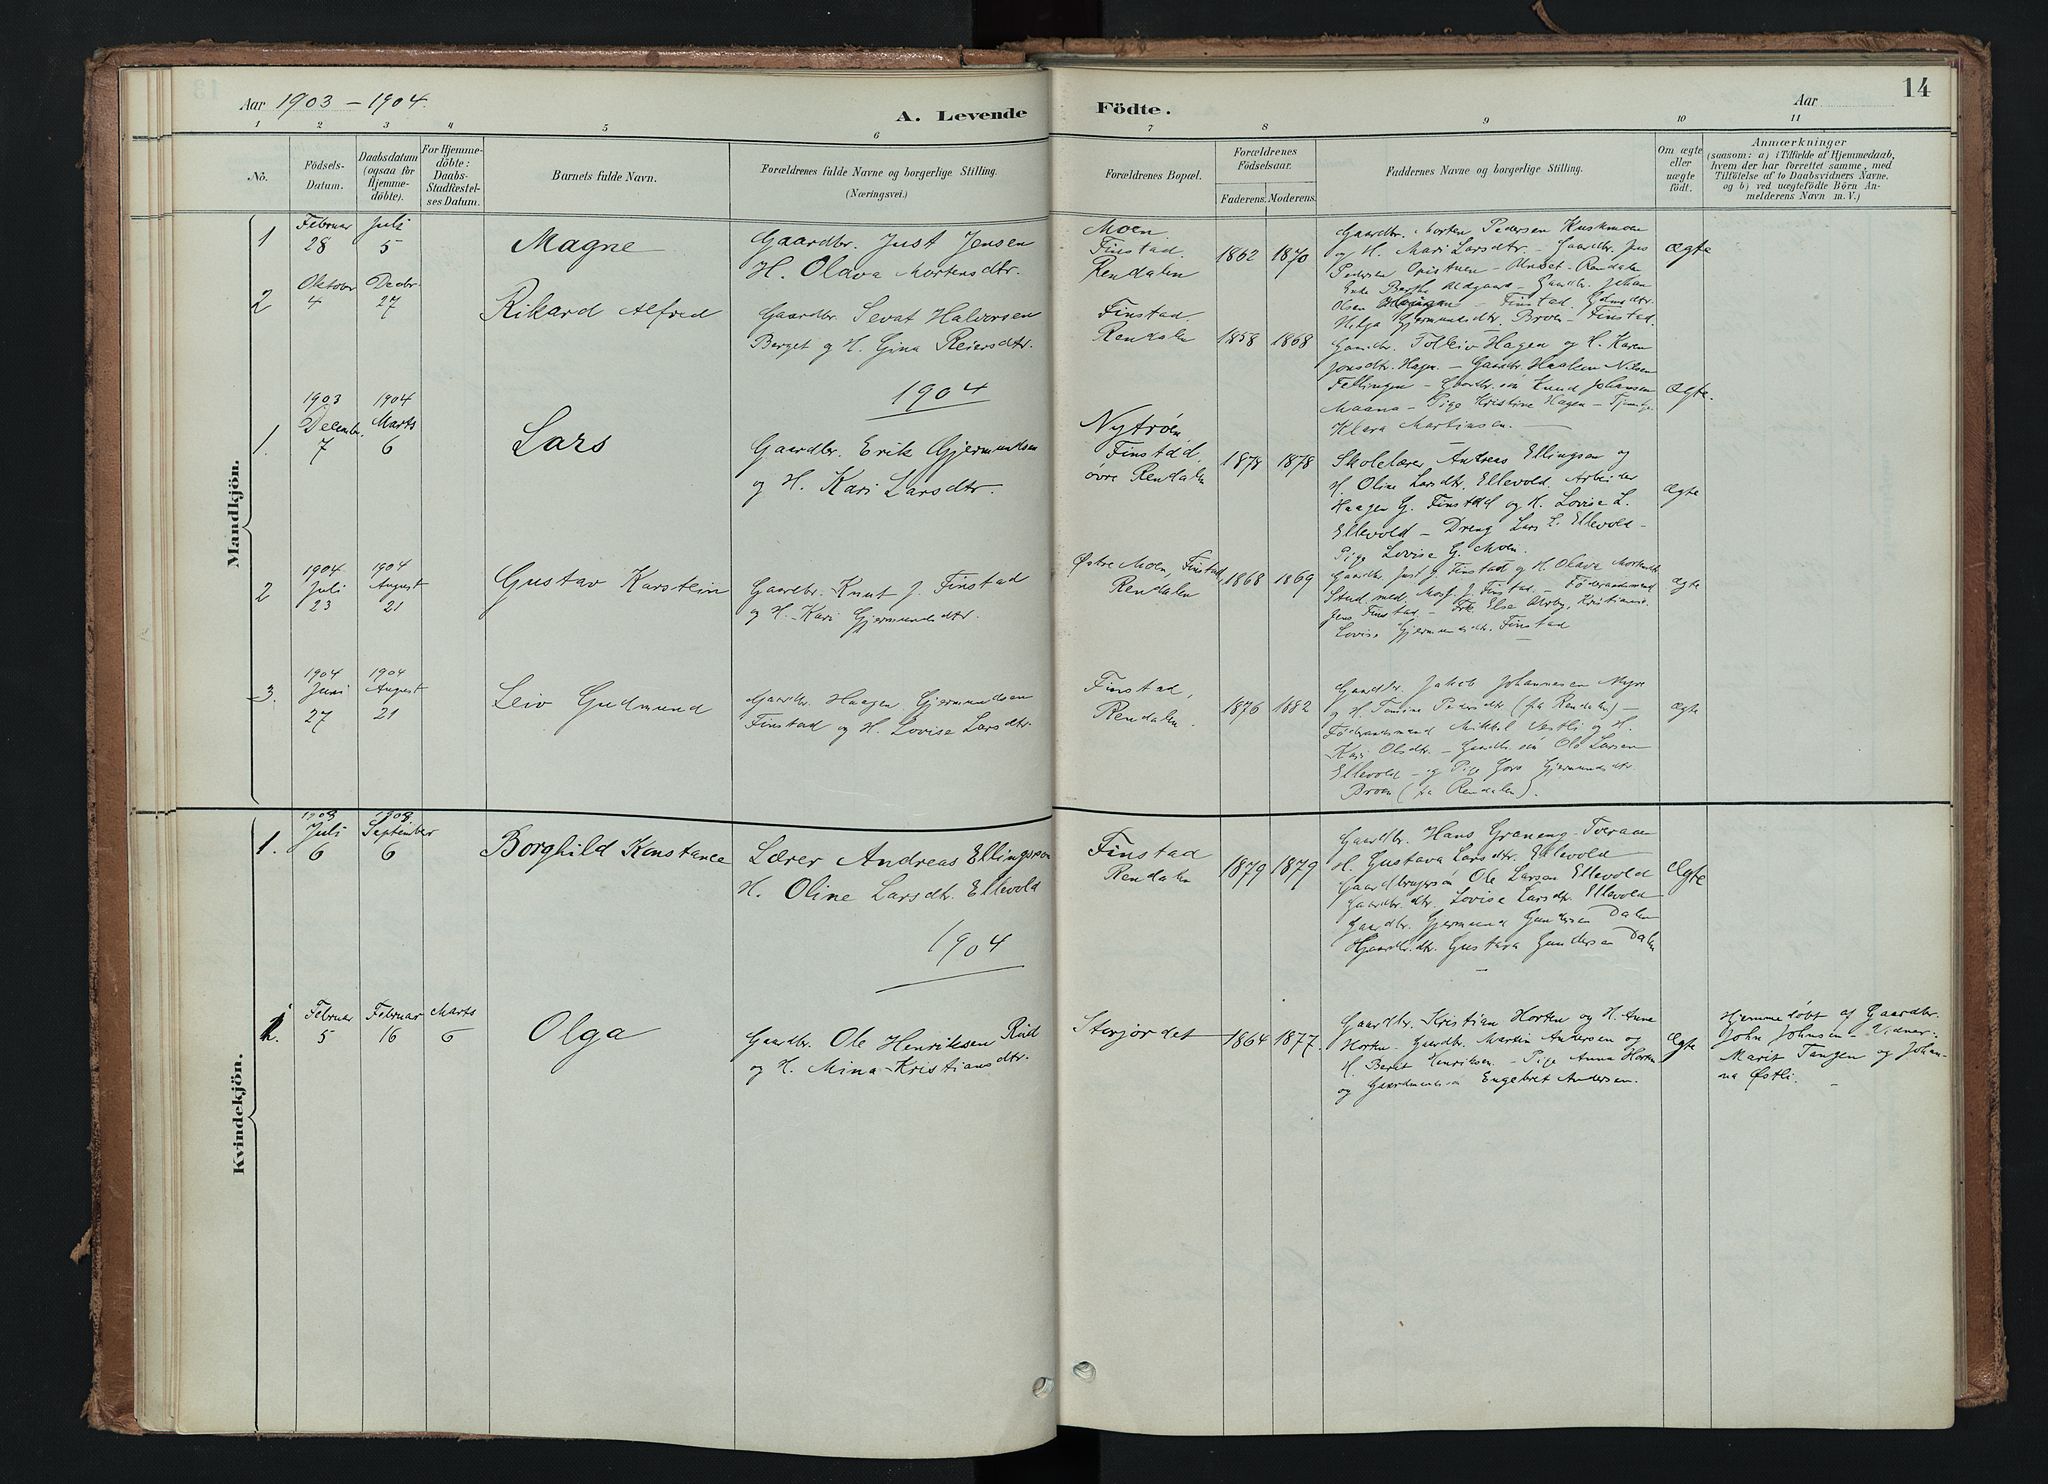 Aar 1903 – 1904.
A. Levende Födte.
Aar
14
1 2 3 4 5 6 7 8 9 10 11
No.
Födsels-
Datum.
Daabsdatum
(ogsaa for
Hjemme-
döbte).
For Hjemme-
döbte:
Daabs-
Stadfæstel-
ses Datum.
Barnets fulde Navn.
Forældrenes fulde Navne og borgerlige Stilling.
(Næringsvei.)
Forældrenes Bopæl.
Forældrenes
Födselsaar.
Faderens. Moderens.
Faddernes Navne og borgerlige Stilling.
Om ægte
eller
uægte
født.
Anmærkninger
(saasom: a) i Tilfælde af Hjemmedaab,
hvem der har forrettet samme, med
Tilföielse af to Daabsvidners Navne,
og b) ved uægtefödte Börn An-
melderens Navn m. V.)
Mandkjön.
1
Februar
28
Juli
5
Magne
Gaardbr. Just Jensen
H. Olava Mortensdtr.
Moen
Finstad.
Rendalen
1862 1870
Gaardbr. Morten Pedersen
og H. Mari Larsdtr – Gaardbr.
Pedersen – Unset – Rendalen
Enke Berthe – Gaardbr. Johan
Olsen – Finstad,
Helga Gjermundsdtr. Broen – Finstad.
Ægte
2
Oktober
4
Decbr.
27
Rikard Alfred
Gaardbr. Sevat Halvorsen
Berget og H. Gina Reiersdtr.
Finstad
Rendalen
1858 1868
Gaardbr. Tolleiv Hagen og H. Karen
Jonsdtr. Hagen – Gaardbr. Haaken Nilsen
Fellingen – Gaardbr. sön Knud Johansen
Maana – Pige Kristine Hagen –
Klara Martinsen. –
Ægte.
1904
1.
1903
Decembr.
7
1904
Marts
6
Lars
Gaardbr. Erik Gjermundsen
og H. Kari Larsdtr.
Nytrøen
Finstad,
øvre Rendalen
1878 1878
Skolelærer Andreas Ellingsen og
H. Oline Larsdtr. Ellevold, Arbeider
Haagen G. Finstad og H. Lovise L.
Ellevold – Dreng Lars L. Ellevold –
Pige Lovise G. Moen.
Ægte
2
1904
Juli
23
1904
August
21
Gustav Karstein
Gaardbr. Knut J. Finstad
og H. Kari Gjermundsdtr.
Østre Moen, Finstad,
Rendalen
1868 1869
Gaardbr. Just J. Finstad og H. Olava Mortensdtr
Stud. med. J. Finstad – Föderaadsmand
Jens Finstad – Frk. Else
Lovise Gjermundsdtr. Finstad
Ægte
3.
1904
Juni
27
1904
August
21
Leiv Gudmund
Gaardbr. Haagen Gjermundsen
Finstad og H. Lovise Larsdtr.
Finstad,
Rendalen.
1876 1882
Gaardbr. Jakob Johannesen Myre
og H. Pedersdtr (fra Rendalen) –
Föderaadsmand Mikkel Vestli og H.
Kari Olsdtr. – Gaardbr. sön Ole Larsen
Ellevold – og Pige Gjermundsdtr.
Broen (fra Rendalen).
Ægte
Kvindekjön.
1.
1903
Juli
6
1903.
September
6
Borghild Konstance
Lærer Andreas Ellingsson
H. Oline Larsdtr. Ellevold
Finstad
Rendalen
1879 1879
Gaardbr. Hans
H. Gustava Larsdtr. Ellevold
Gaardbrugersön Ole Larsen Ellevold
Gaardbr. dtr. Lovise Larsdtr. Ellevold
Gaardbr. Gjermund Gundersen Dalen
Gaardbr. dtr. Gustava Gundersen Dalen
Ægte
1904
1.
Februar
5
Februar
16
Marts
6
Olga
Gaardbr. Ole Henriksen
og H. Mina Kristiansdtr.
1864 1877.
Gaardbr. Kristian Horten og H. Anne
Horten – Gaardbr. Martin Andersen og
H. Beret Henriksen – Pige Anna Horten
og Engebret Andersen.
Ægte
Hjemmedøbt af Gaardbr.
John Johnsen – Vidner:
Marit Tangen og Johan-
na Østli. –